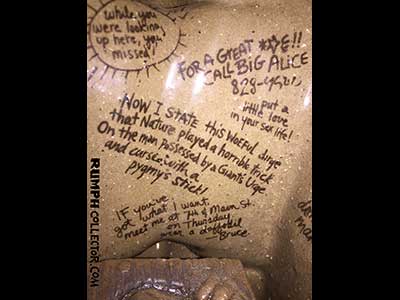 while you
were looking
up here, you
missed!
FOR A GREAT !!
CALL BIG ALICE
828-
put a
little love
in your sex life!
NOW I STATE this WOEFUL dirge
that NATURE played a horrible trick
On the man possessed by a GIANT'S Urge
and cursed with a
pygmy's stick!
IF you've
got what I want,
meet me at 7th & Main St.
on Thursday,
wear a daffodil
Bruce.
RUMPH COLLECTOR.COM